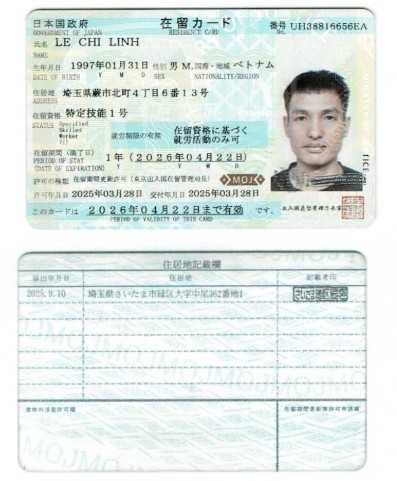 日本国政府 在留カード 番号 UH38816656EA
GOVERNMENT OF JAPAN RESIDENCE CARD NO.
氏名 LE CHI LINH
NAME
生年月日 1997年01月31日 性別 男 M. 国籍・地域 ベトナム
DATE OF BIRTH Y M D SEX NATIONALITY/REGION
住居地 埼玉県蕨市北町4丁目6番13号
ADDRESS
在留資格 特定技能1号
STATUS Specified Skilled Worker (i)
就労制限の有無 在留資格に基づく就労活動のみ可
在留期間(満了日) 1年(2026年04月22日)
PERIOD OF STAY (DATE OF EXPIRATION) Y M D
許可の種類 在留期間更新許可(東京出入国在留管理局長)
MOJ
許可年月日 2025年03月28日 交付年月日 2025年03月28日
このカードは 2026年04月22日まで有効 です。
PERIOD OF VALIDITY OF THIS CARD
出入国在留管理庁長官
住居地記載欄
届出年月日 住居地 記載者印
2025.9.10 埼玉県さいたま市緑区大字中尾362番地1
資格外活動許可欄 在留期間更新等許可申請欄
MOJ MOJ